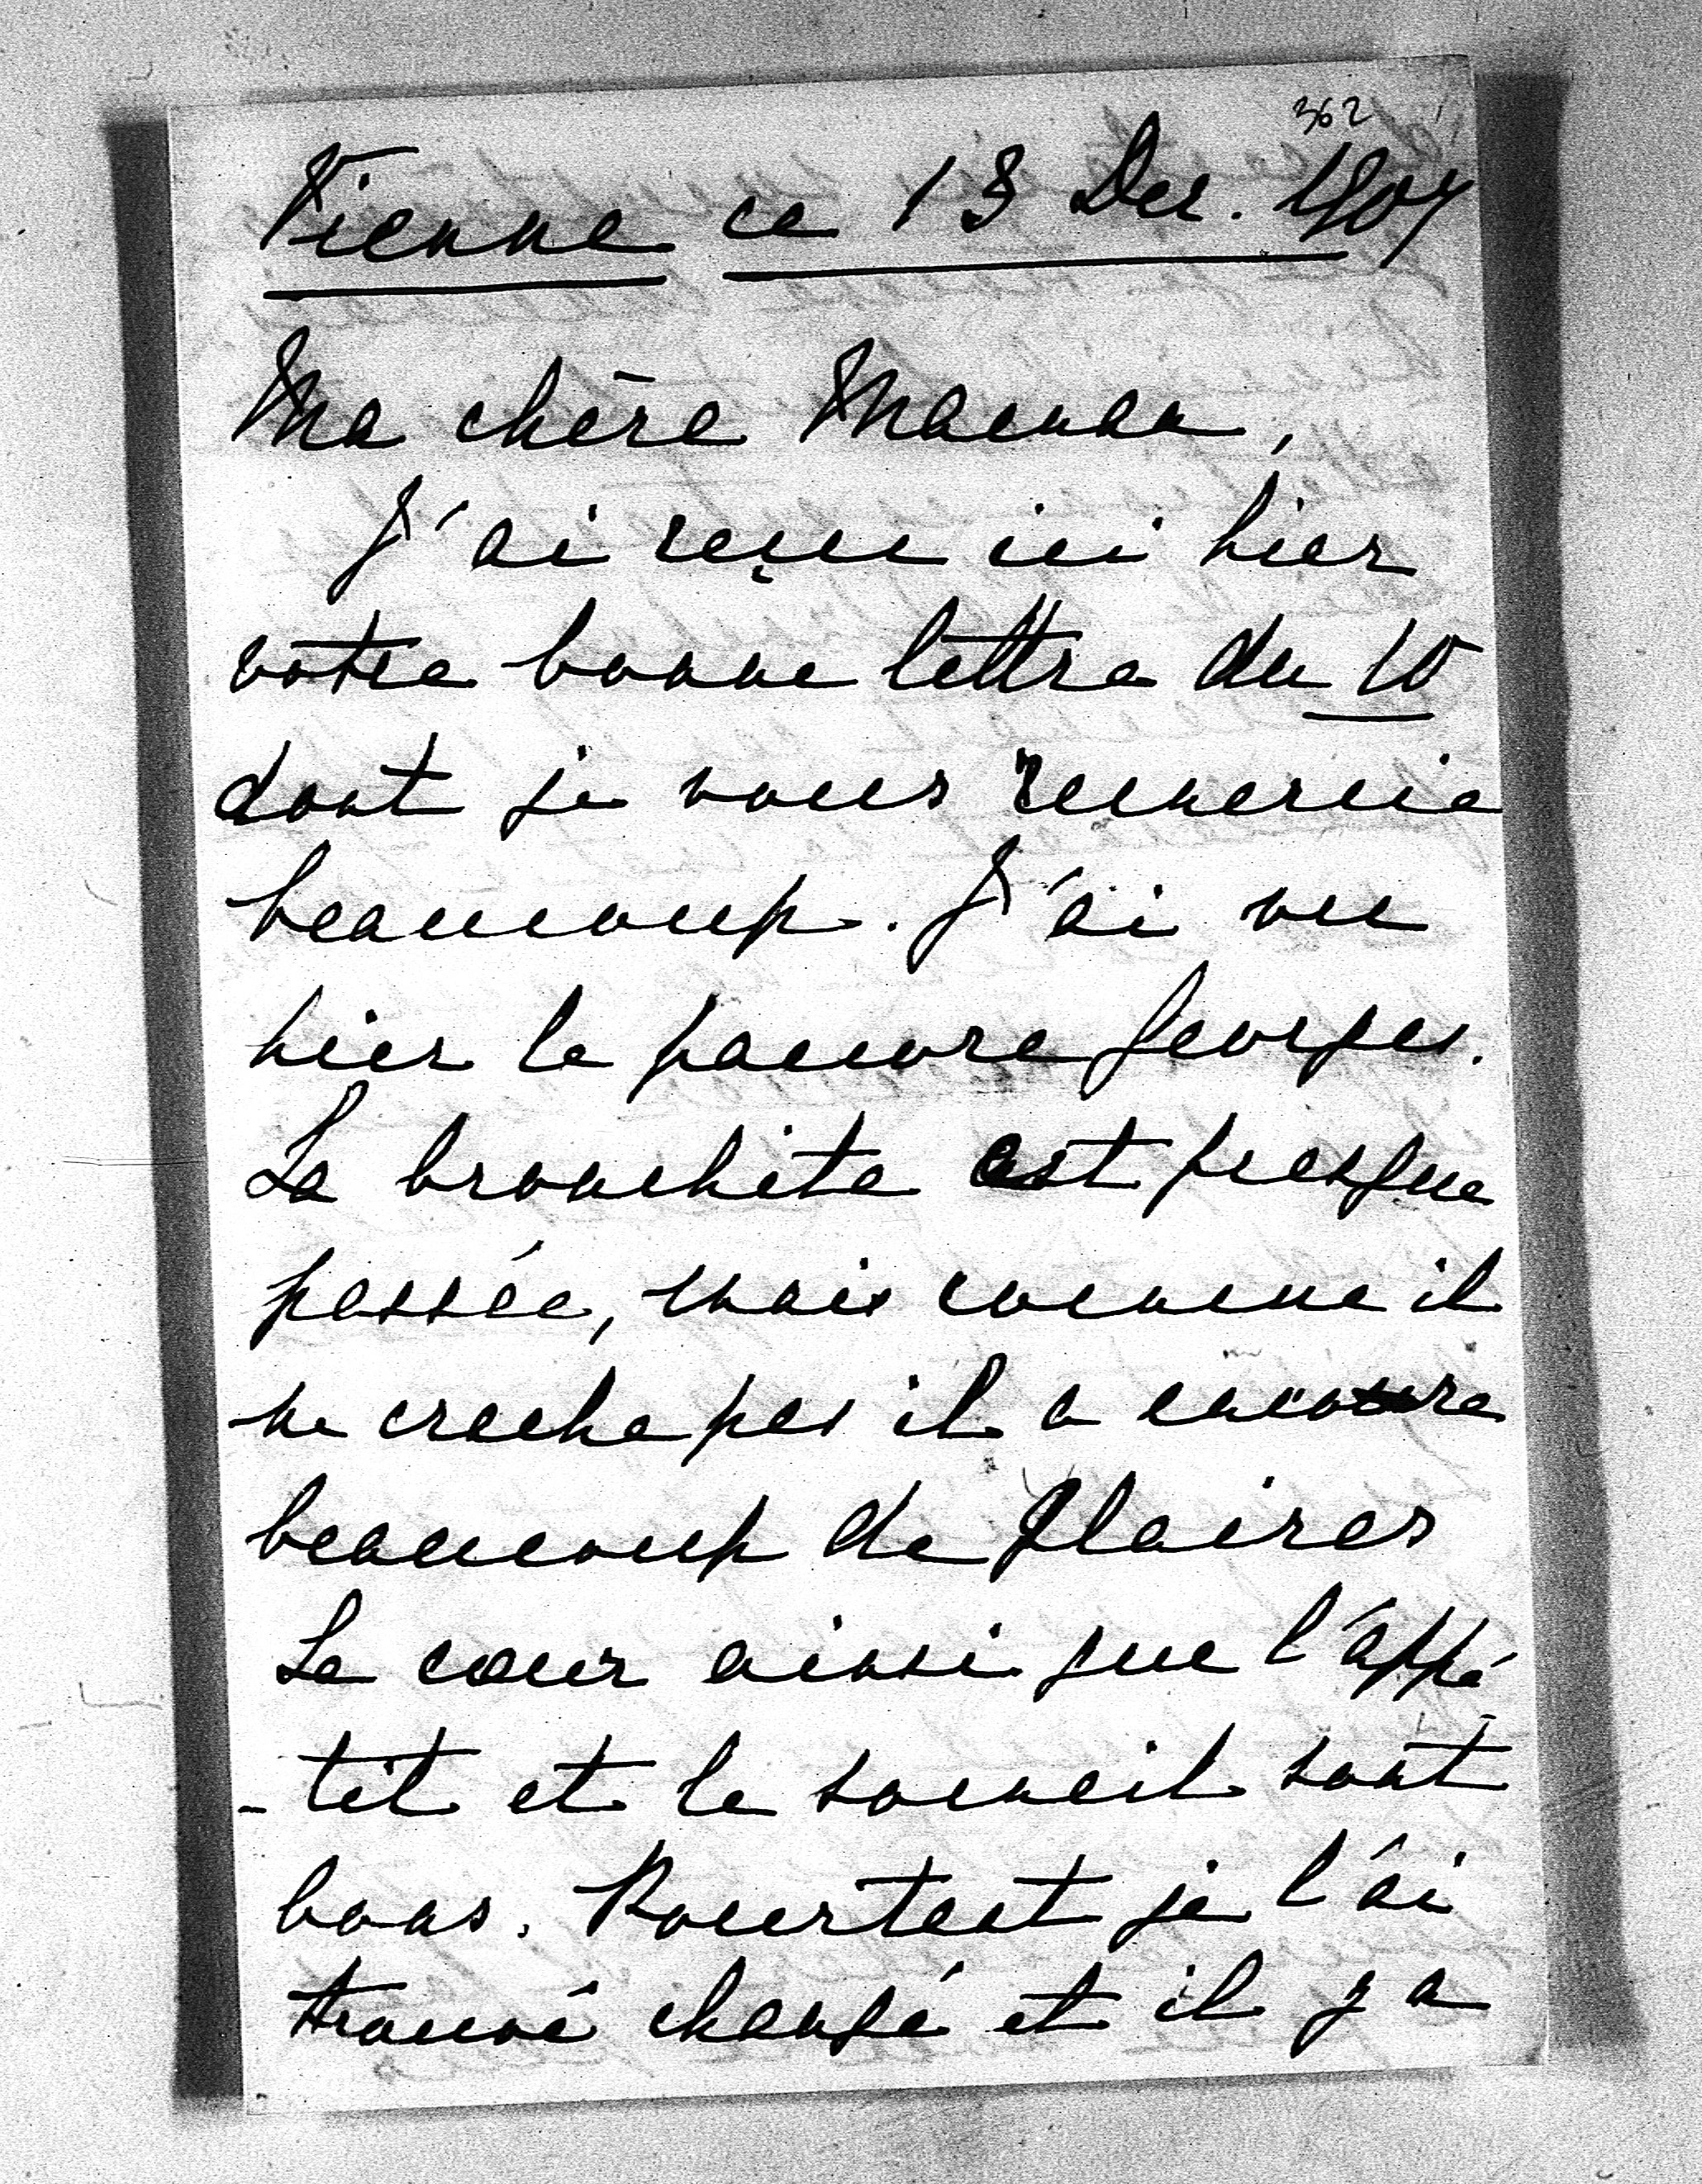 362
Vienne ce 13 Dec. 1907
Ma chère Maman,
J'ai reçu ici hier
votre bonne lettre du 10
dont je vous remercie
beaucoup. J'ai vu
hier le pauvre Georges.
La bronchite est presque
passée, mais comme il
ne crache pas il a encore
beaucoup de glaires
Le cœur ainsi que l'appé
-tit et le sommeil sont
bons. Pourtant je l'ai
trouvé changé et il y a